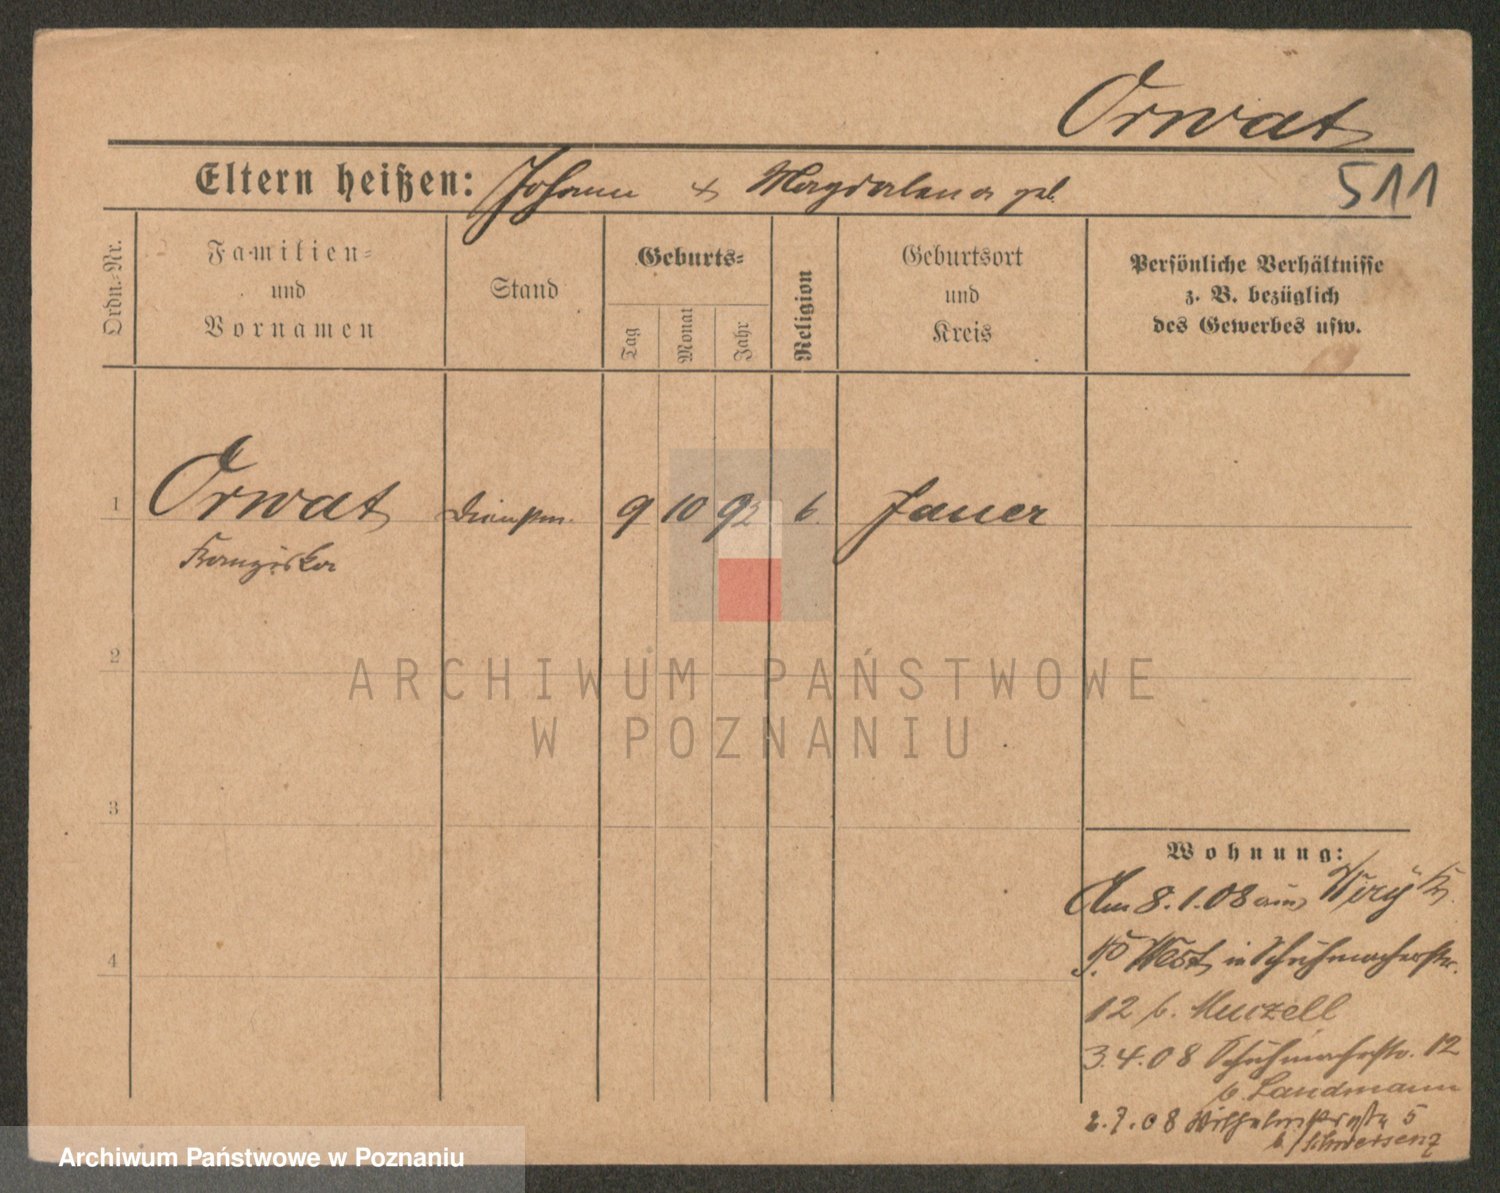 Orwat
511
Eltern heißen: Johann & Magdalena geb.
Ordn.-Nr.
Familien-
und
Vornamen
Stand
Geburts-
Tag
Monat
Jahr
Religion
Geburtsort
und
Kreis
Persönliche Verhältnisse
z. B. bezüglich
des Gewerbes usw.
1 Orwat 9 10 92 Jauer
Franziska
2
3
4
ARCHIWUM PAŃSTWOWE
W POZNANIU
Wohnung:
Am 8.1.08 aus
West in Schuhmacherstr.
12 b. Muczell
3.4.08 Schuhmacherstr. 12
b. Landmann
2.7.08 5
b/Schwersenz
Archiwum Państwowe w Poznaniu